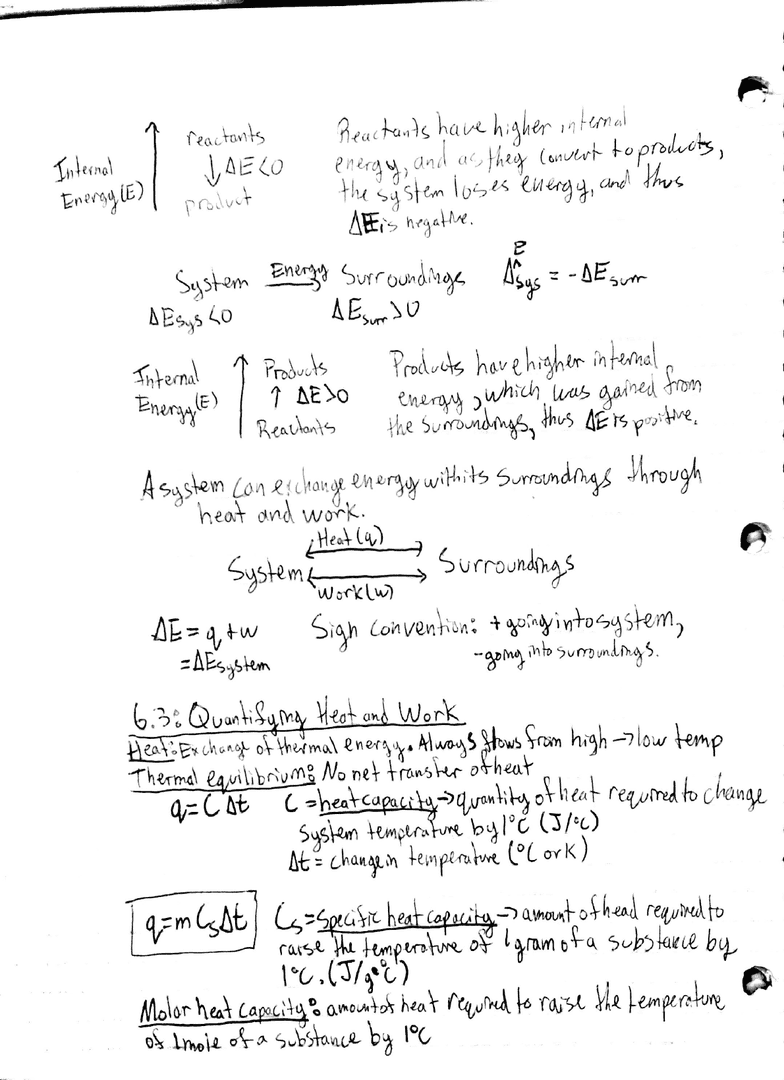 Internal
Energy(E)
reactants
↓ ΔE<0
product
Reactants have higher internal
energy, and as they convert to products,
the system loses energy, and thus
ΔE is negative.
System Energy→ Surroundings
ΔEsys<0 ΔEsurr>0
ΔEsys = -ΔEsurr
Internal
Energy(E)
Products
↑ ΔE>0
Reactants
Products have higher internal
energy, which was gained from
the surroundings, thus ΔE is positive.
A system can exchange energy with its surroundings through
heat and work.
Heat(q)
System Surroundings
Work(w)
ΔE = q+w
=ΔEsystem
Sigh convention: + going into system,
- going into surroundings.
6.3: Quantifying Heat and Work
Heat: Exchange of thermal energy. Always flows from high → low temp
Thermal equilibrium: No net transfer of heat
q=CΔt C = heat capacity → quantity of heat required to change
system temperature by 1°C (J/°C)
Δt = change in temperature (°C or K)
q=mCsΔt Cs = specific heat capacity → amount of head required to
raise the temperature of 1 gram of a substance by
1°C. (J/g•°C)
Molar heat capacity: amount of heat required to raise the temperature
of 1 mole of a substance by 1°C